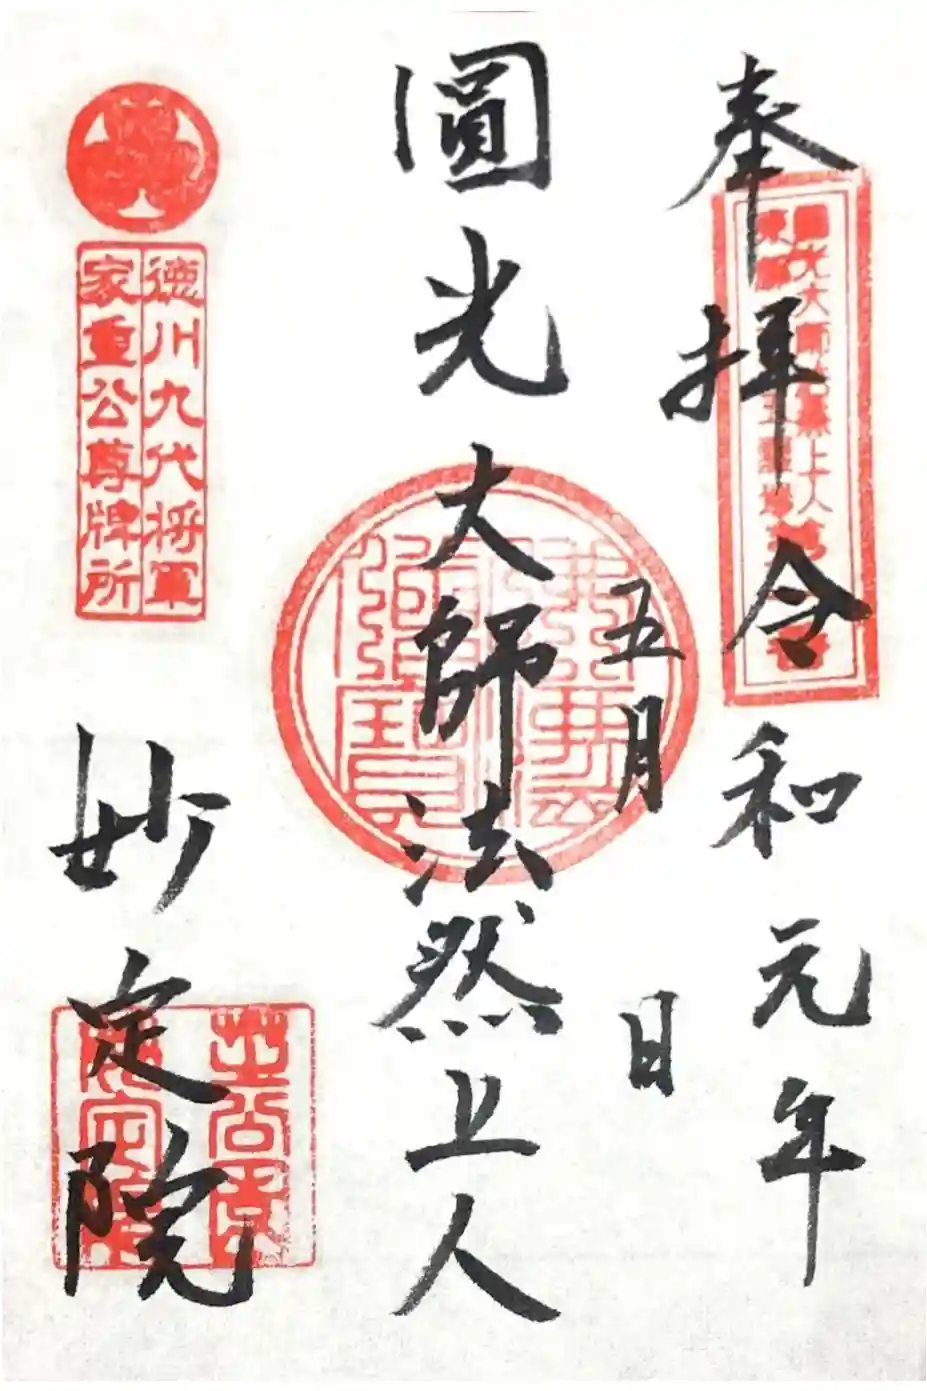 奉拝 令和元年
五月 日
圓光大師法然上人
徳川九代将軍
家重公尊牌所
妙定院